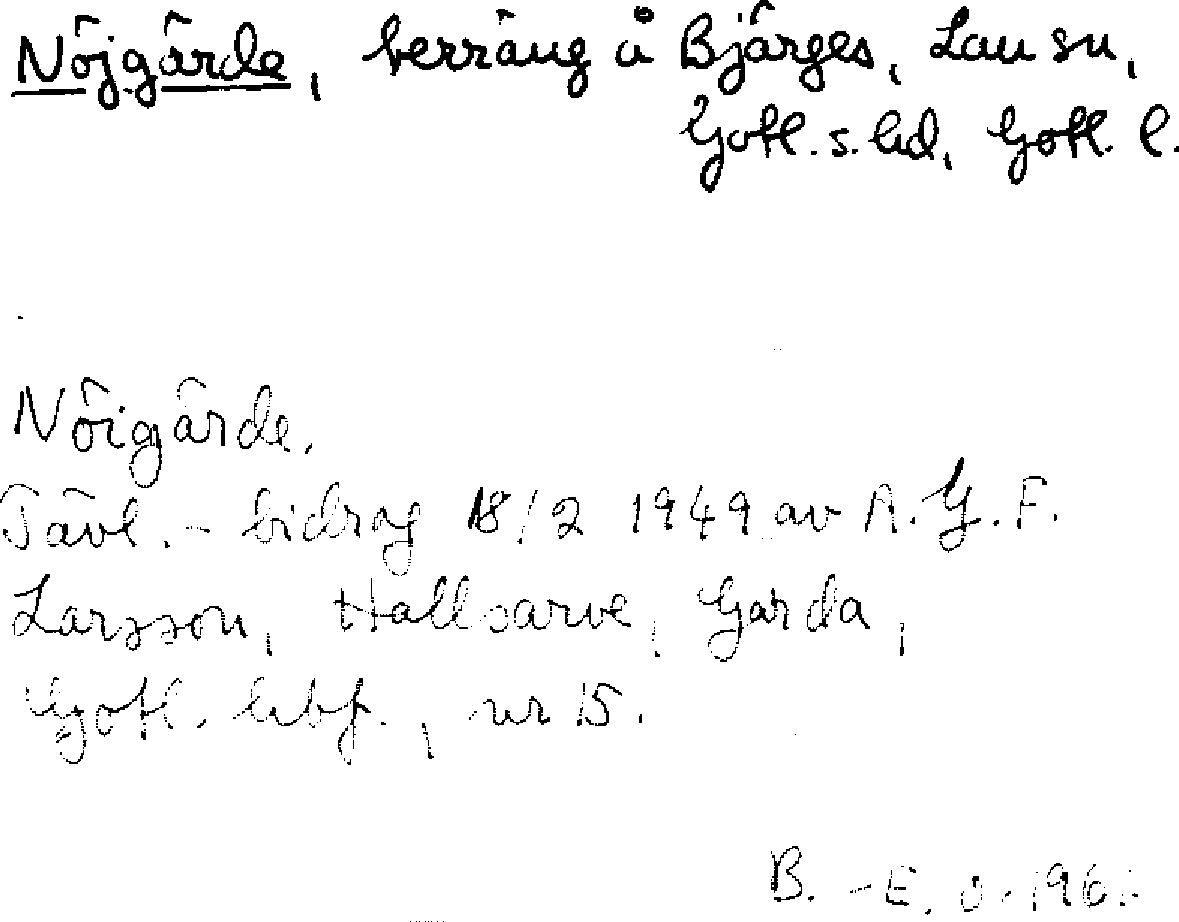 Nöjgärde, terräng å Bjärges, Lau sn,
Gotl. s. hd, Gotl. l.
Nöigärde.
Tävl. - bidrag 18/2 1949 av A. G. F.
Larsson, Hallsarve, Garda,
Gotl. hbf., nr 15.
B. -E. O. 196